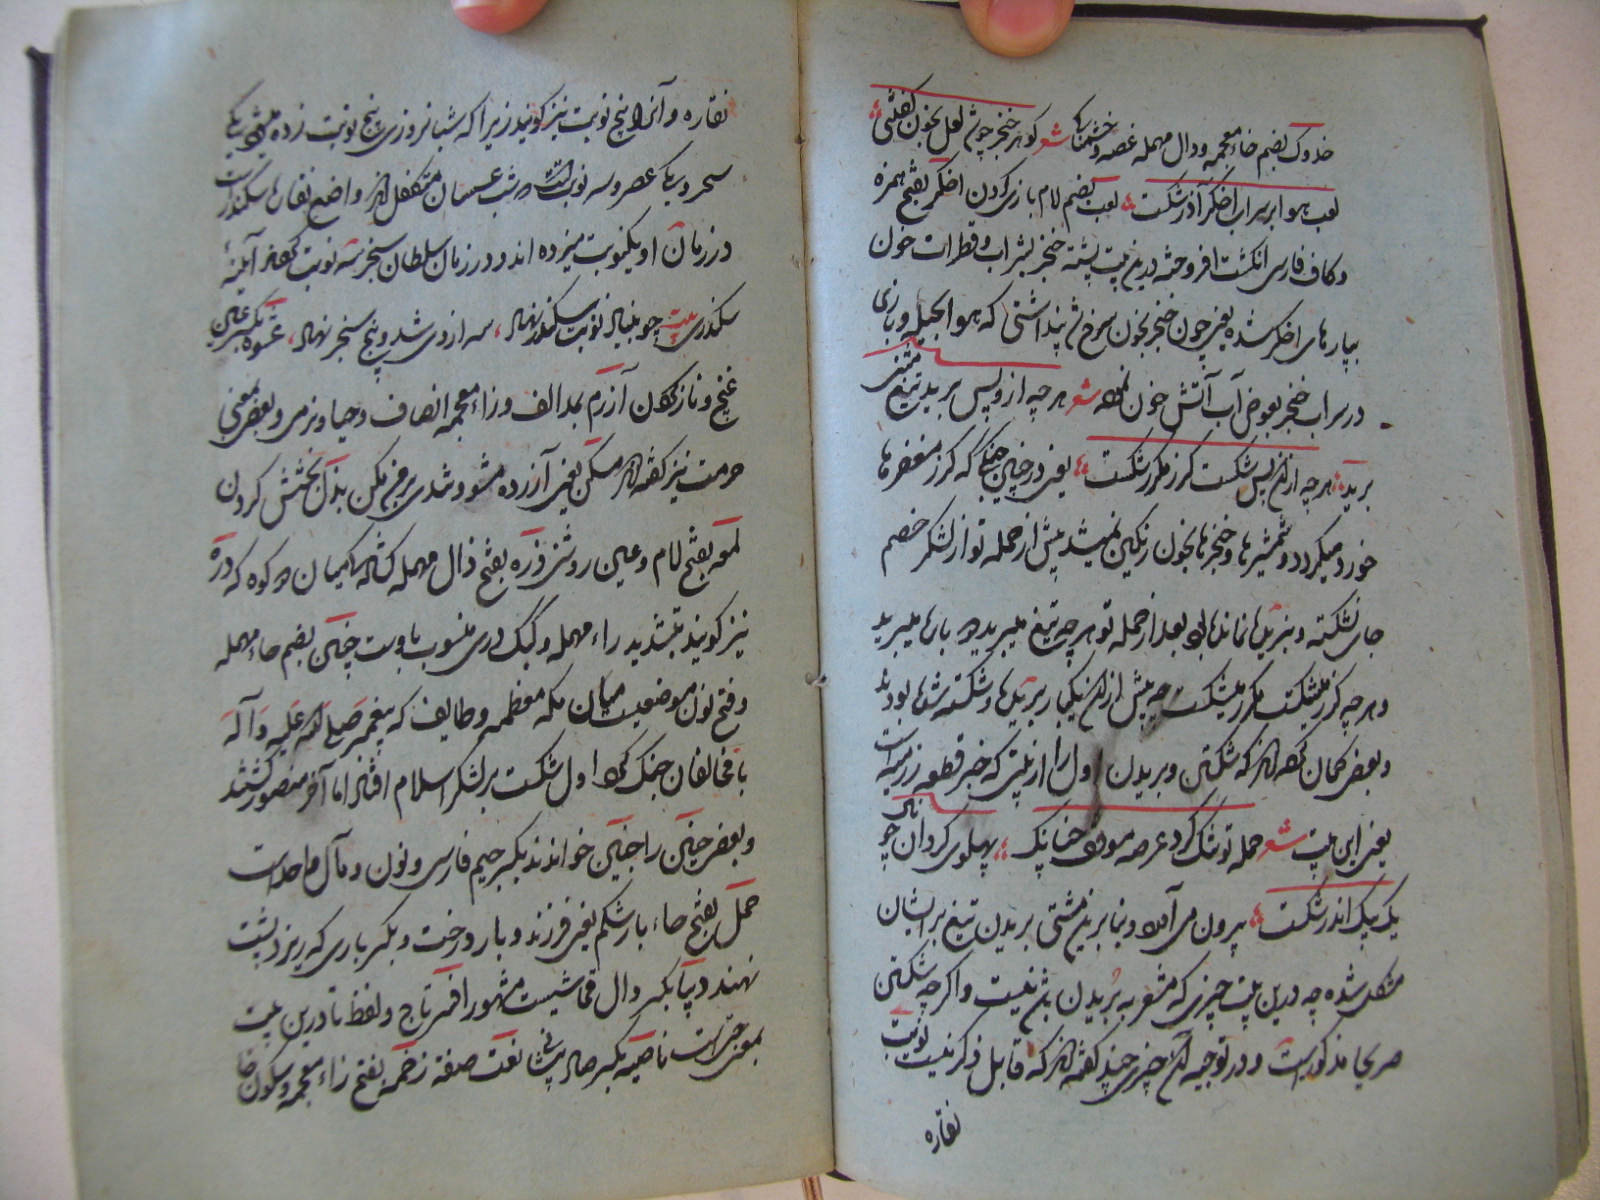 خدوک بضم خاء معجمه و دال مهمله غصه و خشمناکی شعر گوهر خنجر چو شد لعل بخون گفتئی
لعب هوا بر سراب اخگر آذر شکست لعب بضم لام بازی کردن اخگر بفتح همزه
و کاف فارسی انگشت افروخته درین بیت پشته خنجر بسراب و قطرات خون
بپارهای اخگر شده یعنی چون خنجر بخون سرخ شد پنداشتی که هوا بحیله و بازی
در سراب خنجر بعوض آب آتش خون نهاده شعر هر چه ازو پس برید تیغ مثنی
برید هر چه ازان پس شکست گرز مکرر شکست یعنی در چنین جنگی که گرز مغفرها
خورد میکردد و شمشیرها و خنجرها بخون رنگین میشد پیش از حمله تو از لشکر خصم
جای نشکسته و نبریده نمانده بود بعد از حمله تو هر چه تیغ میبرید بارها میبرید
و هر چه گرز میشکست مکرر میشکست چه پیش ازان یکبار بریده و شکسته شده بودند
و بعضی گمان کرده اند که شکستن و بریدن اول را از بیتی که خبر قطعه زرمیه است
یعنی این بیت شعر حمله تو تنگ کرد عرصه موقف چنانک پهلوی گردان چو نای
یک بیک اندر شکست بیرون می آمده و بنابرین مثنی بریدن تیغ بر ایشان
مشکل شده چه درین بیت چیزی که مشعر به بریدن باشد نیست و اگر چه شکستن
صریحا مذکور است و در توجیه آن چیزی چند گفته اند که قابل ذکر نیست نوبت
نقاره
نقاره و آنرا پنج نوبت نیز گویند زیرا که شبانروزی پنج نوبت زده میشود یکی
سحر و یکی عصر و سه نوبت در شب عسسان متکفل اند و واضع نقاره سکندر است
در زمان او یکنوبت میزده اند و در زمان سلطان سنجر سه نوبت آینه
سکندری بیت چو بنیاد نوبت سکندر نهاد سه از وی شد و پنج سنجر نهاد عشوه بکسر عین
غنج و ناز کردن آزرم بمد الف و زاء معجمه انصاف و حیا و نرمی و بعضی بمعنی
حرمت نیز گفته اند مشکن یعنی آزرده مشو و شدی برمی مکن بذل بخشش کردن
لمعه بفتح لام و عین روشنی ذره بفتح ذال مهمله میان دو کوه که دره
نیز گویند بتشدید راء مهمله و کبک دری منسوب باوست حنین بضم حاء مهمله
و فتح نون موضعیست میان مکه معظمه و طایف که پیغمبر صلی الله علیه و آله
با مخالفان جنگ کرد اول شکست بر لشکر اسلام افتاد اما آخر منصور گشتند
و بعضی حنین را جنین خوانده اند بکسر جیم فارسی و نون و مآل واحد است
حمل بفتح حاء بار شکم یعنی فرزند و بار درخت و بکسر باری که بر پشت
نهند دیبا بکسر دال قماشیست مشهور افسر تاج و لفظ تا درین بیت
بمعنی حتی است ناصیه بکسر صاد پیشانی نعت صفت زخمه بفتح زاء معجمه و سکون خا